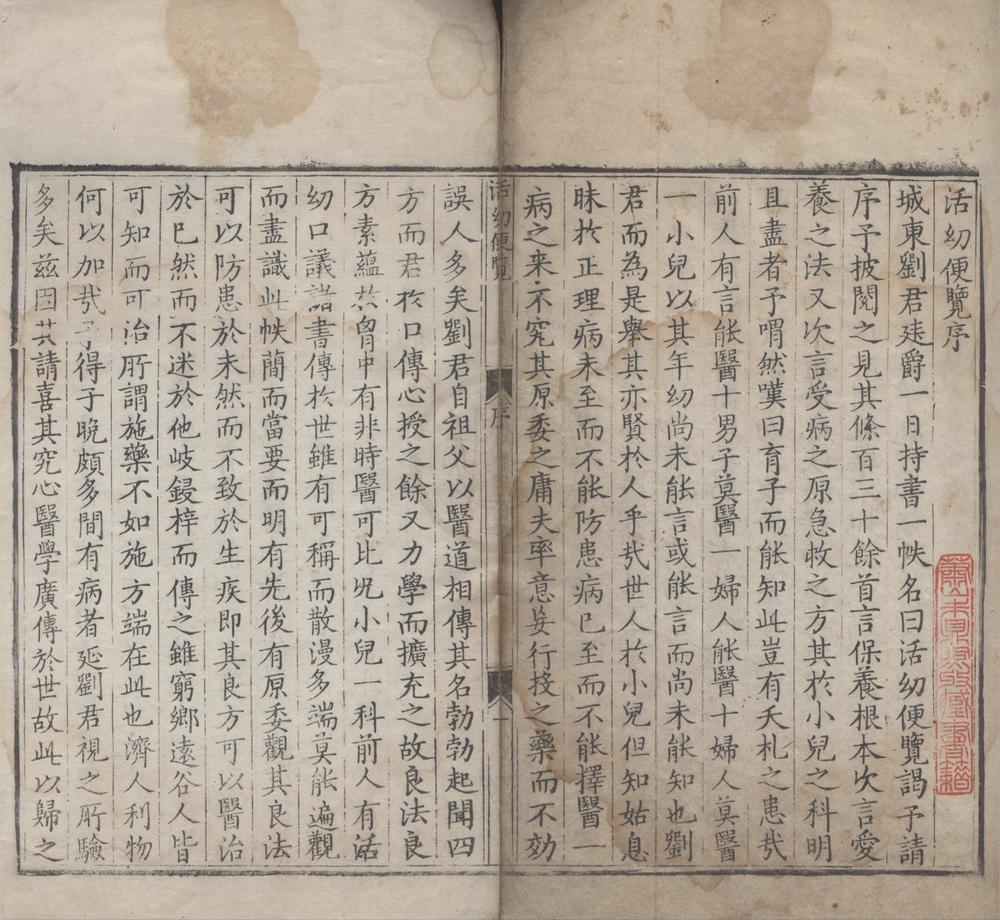 活幼便覽序
城東劉君廷爵一日持書一帙名曰活幼便覽謁予請
序予披閱之見其條百三十餘首言保養根本次言愛
養之法又次言受病之原急救之方其於小兒之科明
且盡者予喟然嘆曰育子而能知此豈有夭札之患㢤
前人有言能醫十男子莫醫一婦人能醫十婦人莫醫
一小兒以其年幼尚未能言或能言而尚未能知也劉
君而為是舉其亦賢於人乎㢤世人於小兒但知姑息
昧於正理病未至而不能防患病已至而不能擇醫一
病之来不究其原委之庸夫率意妄行投之藥而不効
活幼便覽
序
一
誤人多矣劉君自祖父以醫道相傳其名勃勃起聞四
方而君於口傳心授之餘又力學而擴充之故良法良
方素蘊於胷中有非時醫可比况小兒一科前人有活
幼口議諸書傳於世雖有可稱而散漫多端莫能遍觀
而盡識此帙蕳而當要而明有先後有原委觀其良法
可以防患於未然而不致於生疾即其良方可以醫治
於已然而不迷於他岐鋟梓而傳之雖窮鄉遠谷人皆
可知而可治所謂施藥不如施方端在此也濟人利物
何以加㢤予得子晚頗多間有病者延劉君視之所驗
多矣兹因其請喜其究心醫學廣傳於世故此以歸之